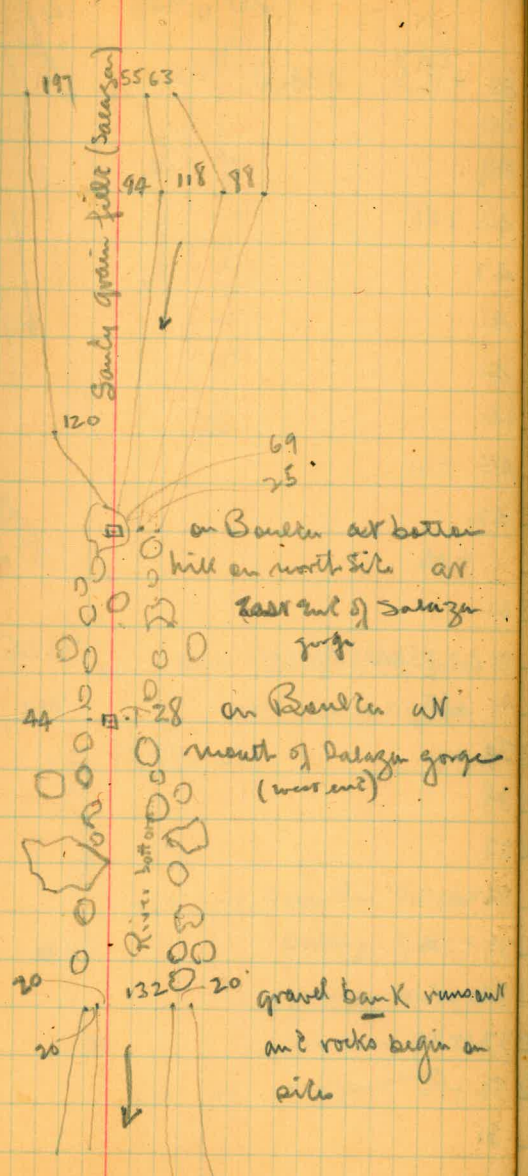 197 55 63
94 118 98
Sandy grain field (Salazar)
120
69
25
on Boulder at bottom
hill on north Side at
East End of Salazar
gorge
44 28 on Boulder at
mouth of Salazar gorge
(west end)
River bottom
20 132 20
gravel bank runs out
20 and rocks begin on
side